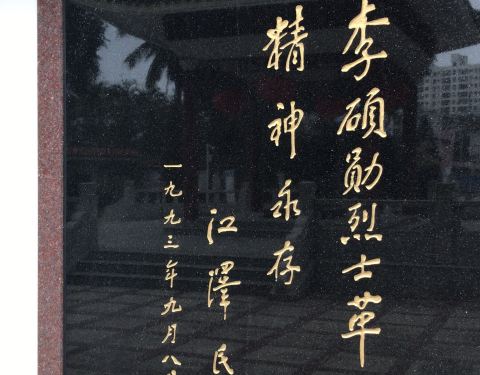 李硕勋烈士革
精神永存
江泽民
一九九三年九月八日